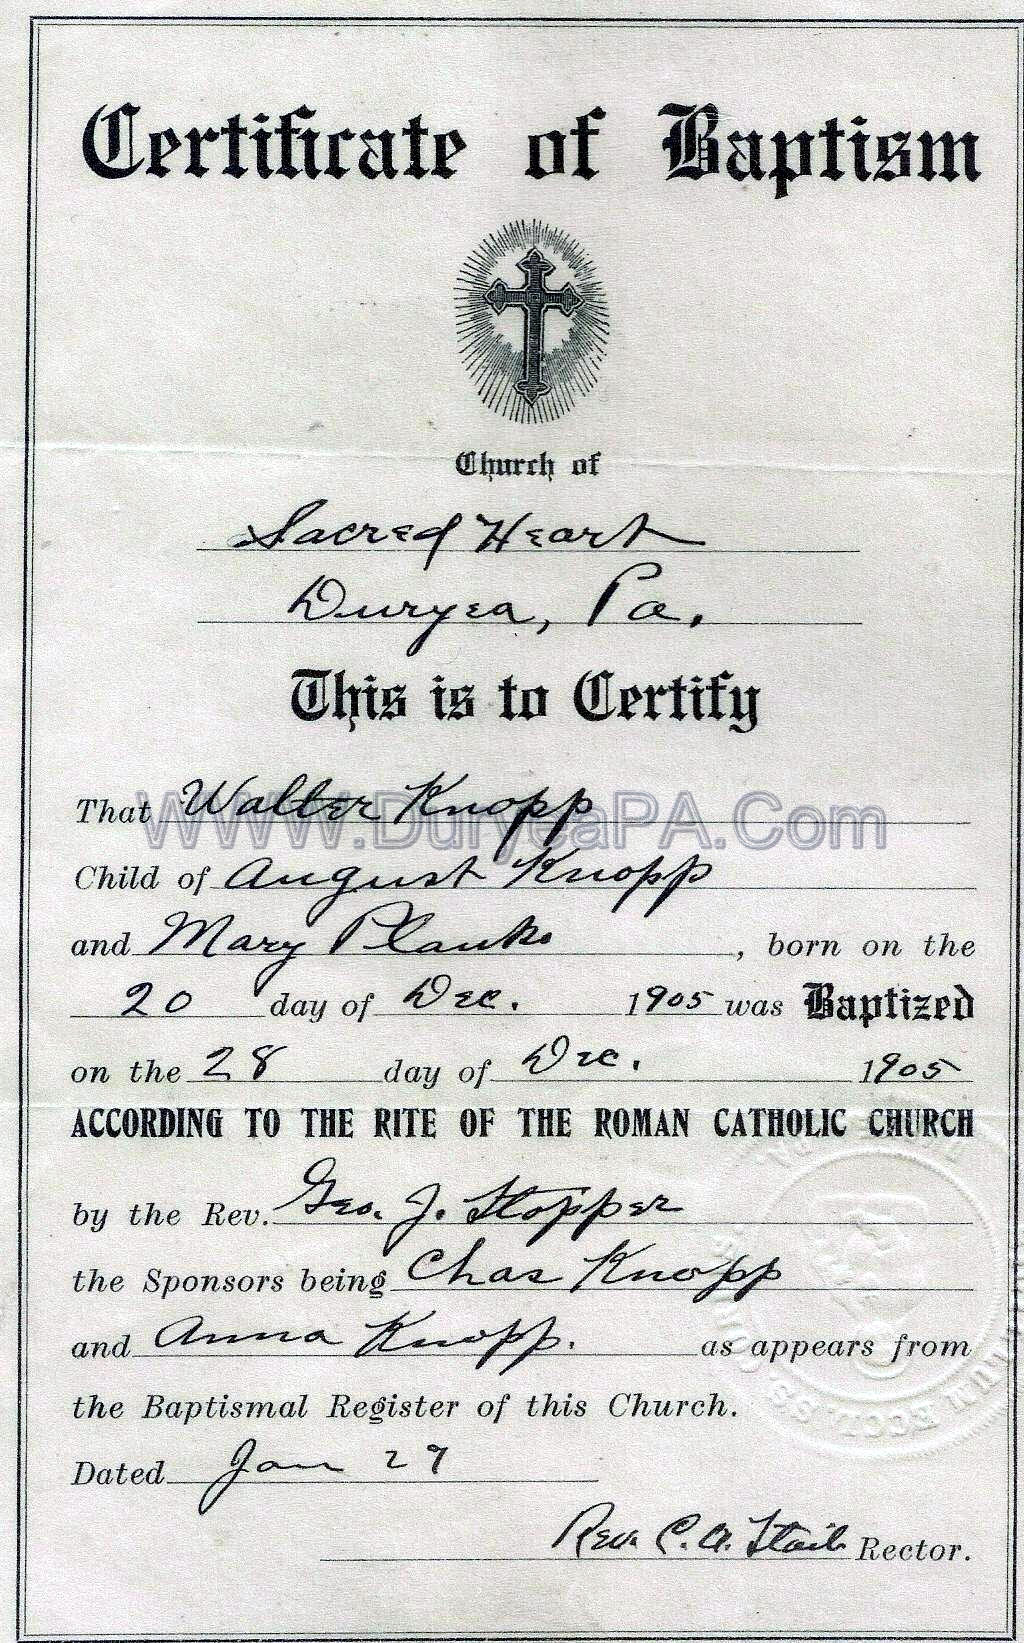 Certificate of Baptism
Church of
Sacred Heart
Duryea, Pa.
This is to Certify
That Walter Knopp
WWW.DuryeaPA.Com
Child of August Knopp
and Mary Planko, born on the
20 day of Dec. 1905 was Baptized
on the 28 day of Dec. 1905
ACCORDING TO THE RITE OF THE ROMAN CATHOLIC CHURCH
by the Rev. Geo. J. Stopper
the Sponsors being Chas Knopp
and Anna Knopp. as appears from
the Baptismal Register of this Church.
Dated Jan 27
Rev. C. A. Staib Rector.